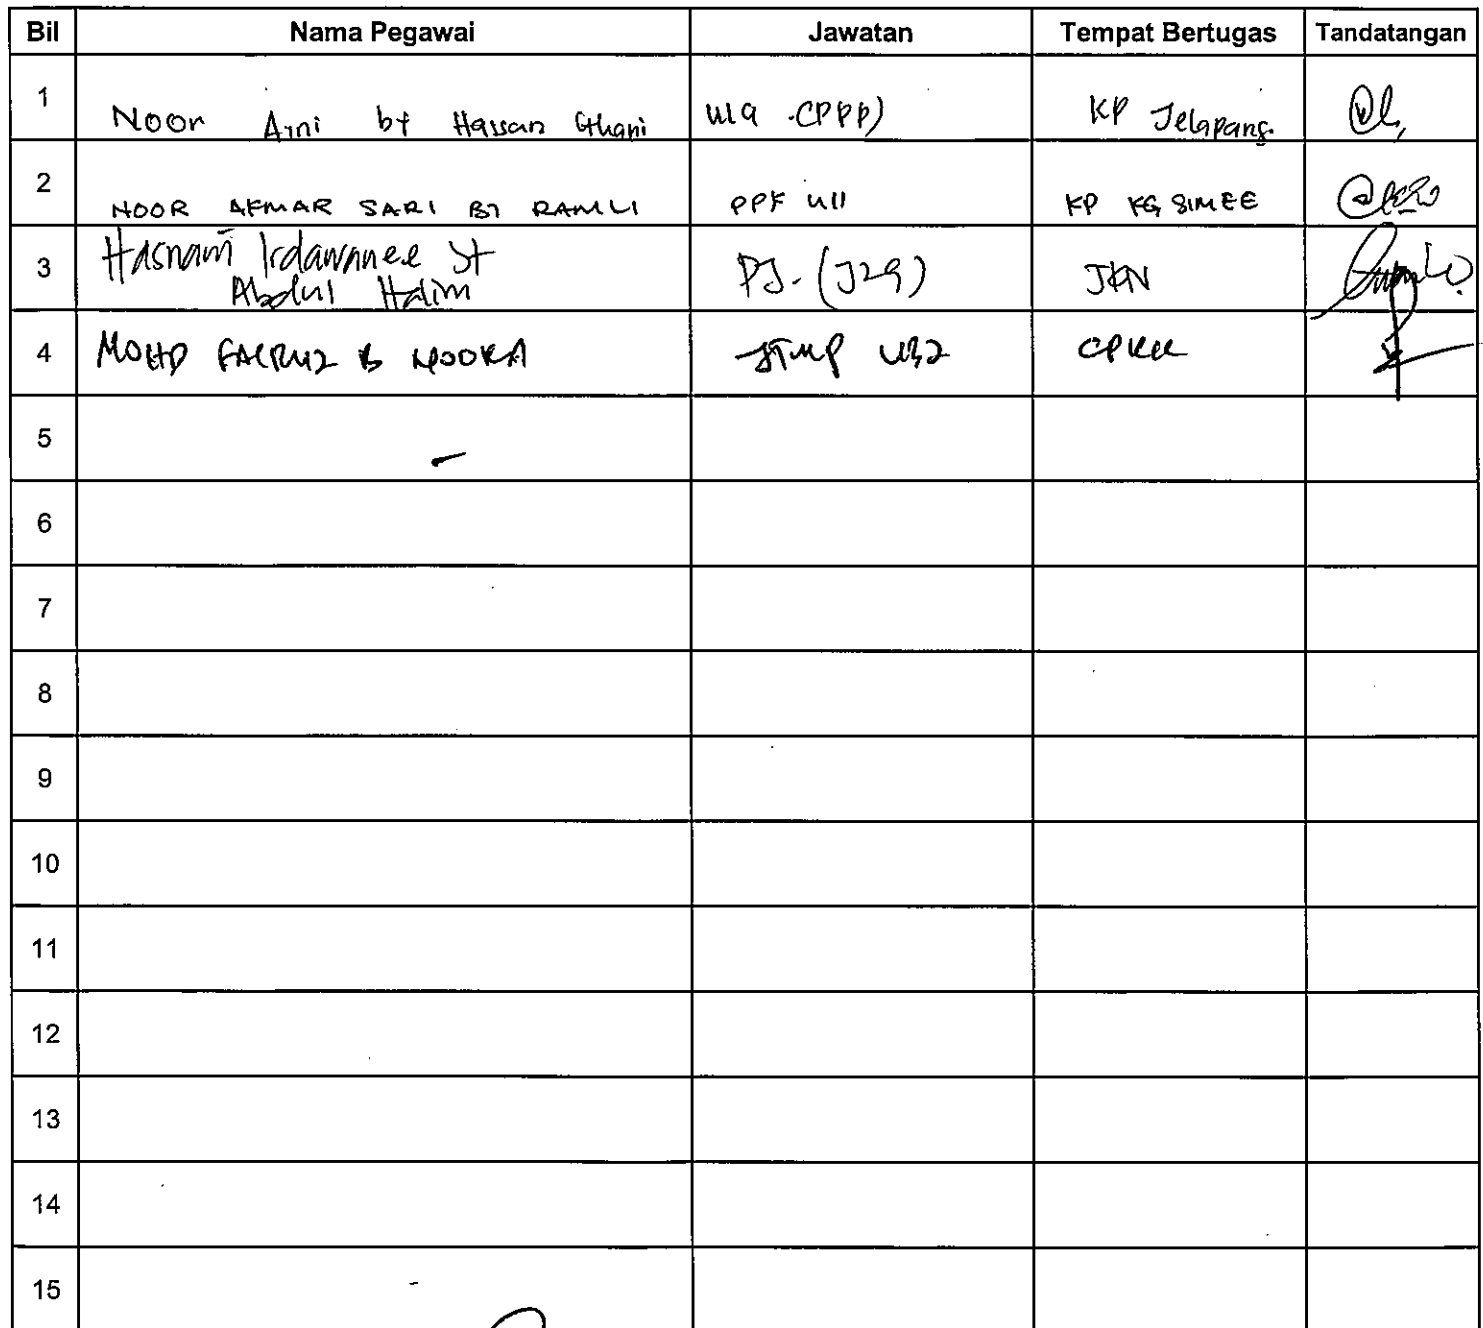 Bil Nama Pegawai Jawatan Tempat Bertugas Tandatangan
1 Noor Aini bt Hassan Ghani U19 (PPP) KP Jelapang
2 NOOR AKMAR SARI BT RAMLI PPK U11 KP KG SIMEE
3 Hasnam Irdawanee bt
Abdul Halim PJ. (J29) JKN
4 MOHD FAIRUZ B U32 CPKK
5
6
7
8
9
10
11
12
13
14
15